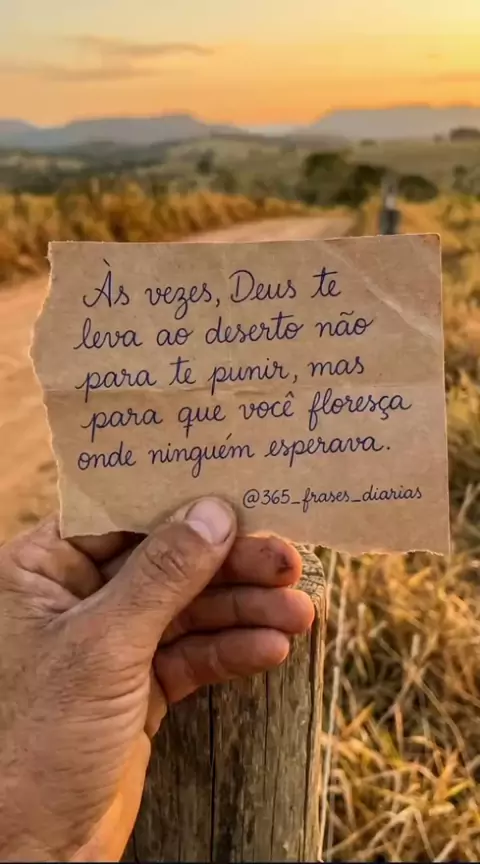 Às vezes, Deus te
leva ao deserto não
para te punir, mas
para que você floresça
onde ninguém esperava.
@365_frases_diarias